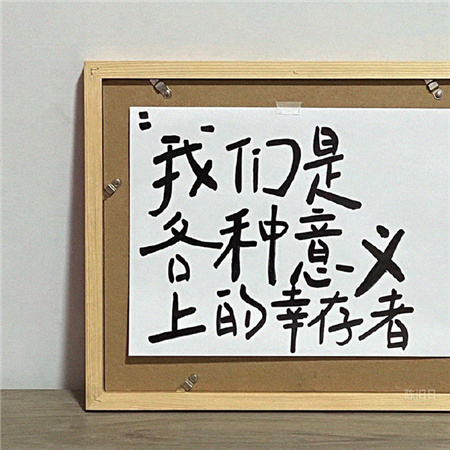 "我们是
各种意义
上的幸存者
陈旧日